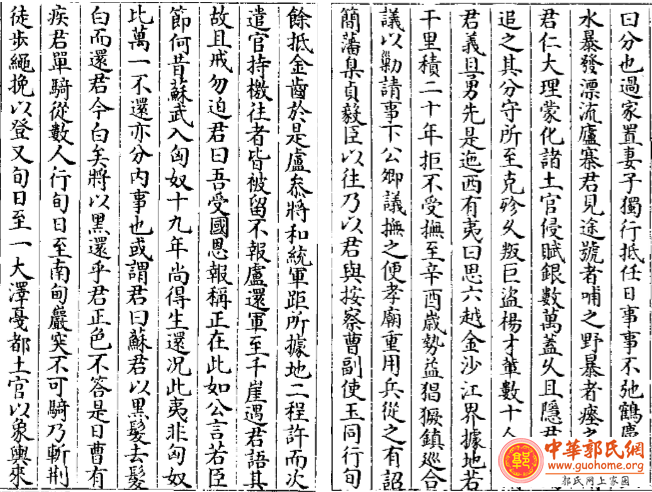 曰分也過家置妻子獨行抵任日事事不弛鶴慶
水暴發漂流廬寨君見途號者哺之野暴者瘞之
君仁大理蒙化諸土官侵賦銀數萬蓋久且隱君
追之其分守所至克殄久叛巨盜楊才輩數十人
君義且勇先是迤西有夷曰思六越金沙江界據地若
千里積二十年拒不受撫至辛酉歲勢益猖獗鎮巡合
議以勦請事下公卿議撫之便孝廟重用兵從之有詔
簡藩臬貞毅臣以往乃以君與按察曹副使玉同行旬
餘抵金齒於是盧叅將和統軍距所據地二程許而次
遣官持檄往者皆被留不報盧還軍至千崖遇君語其
故且戒勿迫君曰吾受國恩報稱正在此如公言若臣
節何昔蘇武入匈奴十九年尚得生還況此夷非匈奴
比萬一不還亦分內事也或謂君曰蘇君以黑髮去髮
白而還君今白矣將以黑還乎君正色不答是日曹有
疾君單騎從數人行旬日至南甸巖突不可騎乃斬荆
徒步繩挽以登又旬日至一大澤憂都土官以象輿來
中華郭氏網
www.guohome.org
郭氏網上家園